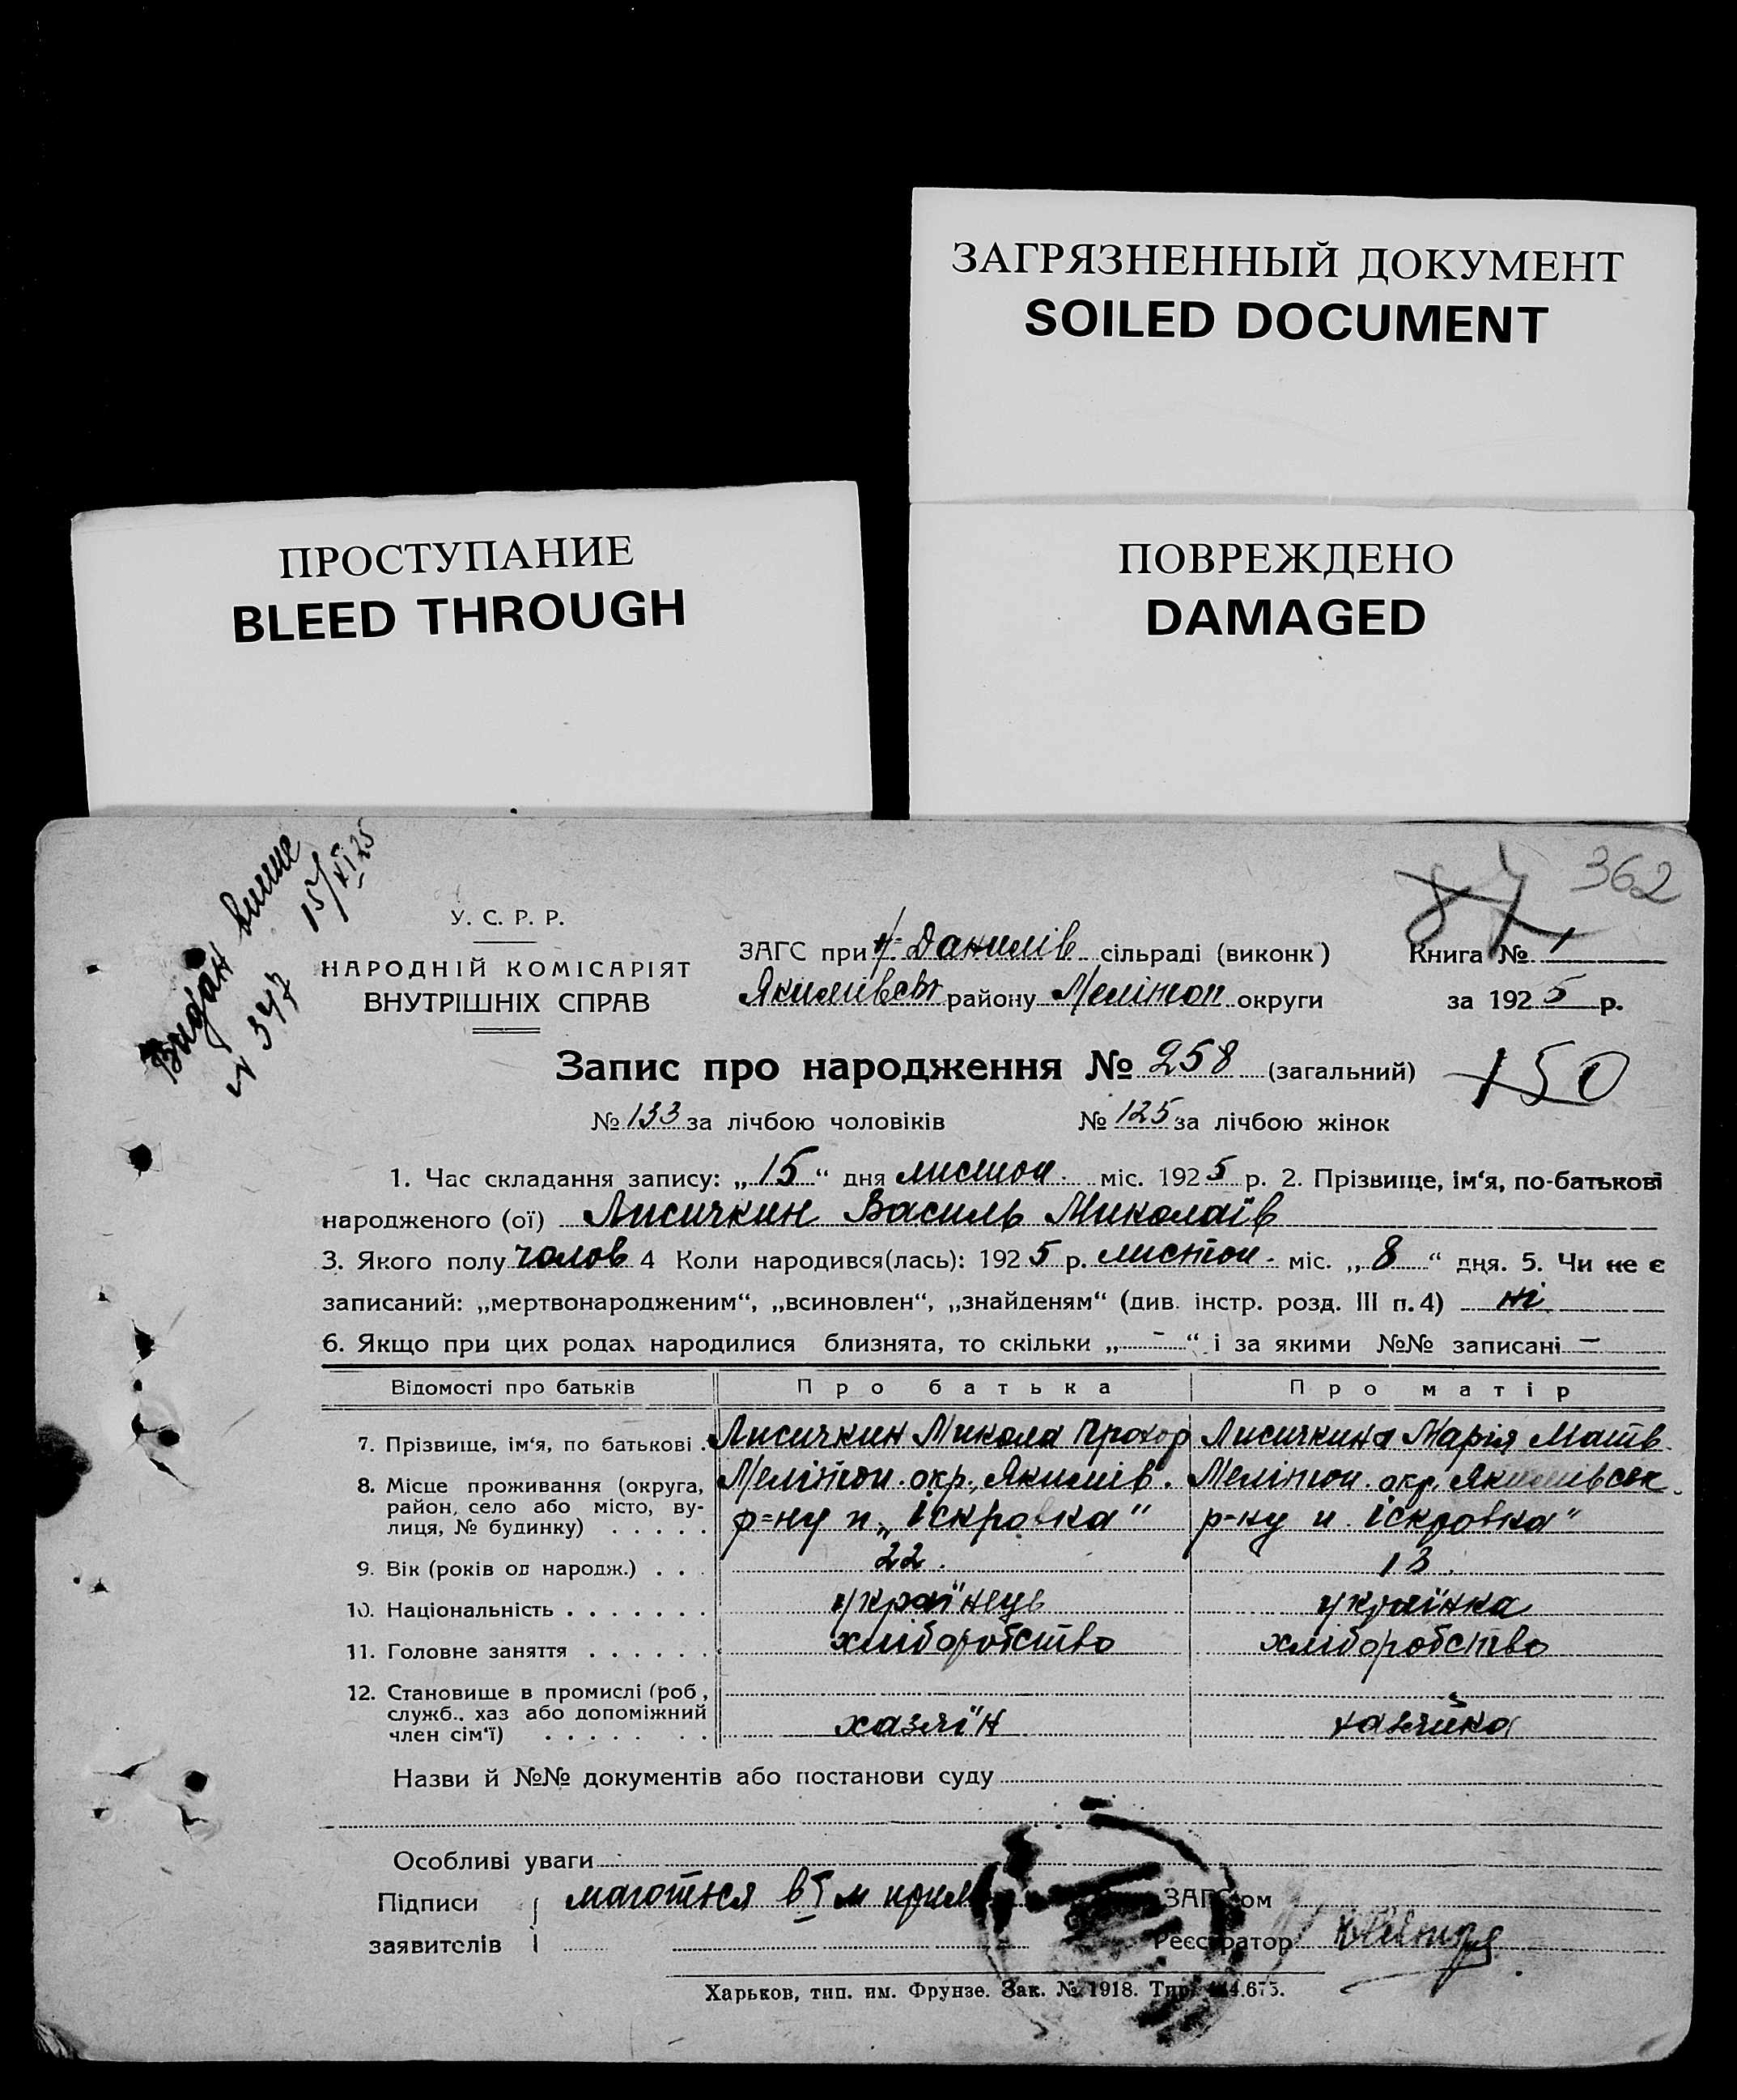 ЗАГРЯЗНЕННЫЙ ДОКУМЕНТ
SOILED DOCUMENT
ПРОСТУПАНИЕ
BLEED THROUGH
ПОВРЕЖДЕНО
DAMAGED
Видан випис
15/XI 25
№ 347
87 362
У. С. Р. Р.
НАРОДНІЙ КОМІСАРІЯТ
ВНУТРІШНІХ СПРАВ
ЗАГС при Н-Данилів сільраді (виконк) Книга № 1
Якимівськ району Мелітоп округи за 1925 р.
Запис про народження № 258 (загальний) 150
№ 133 за лічбою чоловіків № 125 за лічбою жінок
1. Час складання запису: „15“ дня листоп. міс. 1925 р. 2. Прізвище, ім‘я, по-батькові
народженого (ої) Лисичкин Василь Миколаїв
3. Якого полу чолов 4 Коли народився(лась): 1925 р. листоп. міс. „8“ дня. 5. Чи не є
записаний: „мертвонародженим“, „всиновлен“, „знайденям“ (див. інстр. розд. III п. 4) ні
6. Якщо при цих родах народилися близнята, то скільки „-“ і за якими №№ записані —
Відомості про батьків Про батька Про матір
7. Прізвище, ім‘я, по батькові . Лисичкин Микола Прохор Лисичкина Марія Матв.
8. Місце проживання (округа, Мелітоп. окр., Якимів. Мелітоп. окр. Якимівськ.
район, село або місто, ву-
лиця, № будинку) . . . . . р=ну п „Іскровка“ р-ну п. Іскровка“
9. Вік (років од народж.) . . . 22. 18.
10. Національність . . . . . . . українець українка
11. Головне заняття . . . . . . хліборобство хліборобство
12. Становище в промислі (роб,
служб., хаз або допоміжний
член сім‘ї) . . . . . . . хазяїн хазяйка
Назви й №№ документів або постанови суду
Особливі уваги
Підписи маються в I м прим ЗАГС‘ом
заявителів Реєстратор
Харьков, тип. им. Фрунзе. Зак. № 1918. Тир. 4.675.